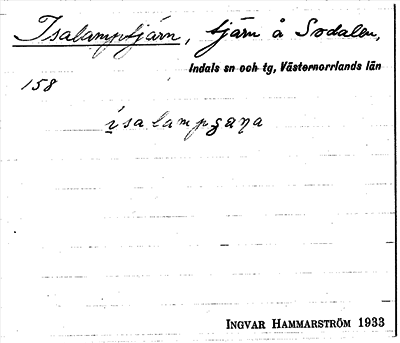 Isalamptjärn, tjärn å Sodalen,
Indals sn och tg, Västernorrlands län
158
INGVAR HAMMARSTRÖM 1933